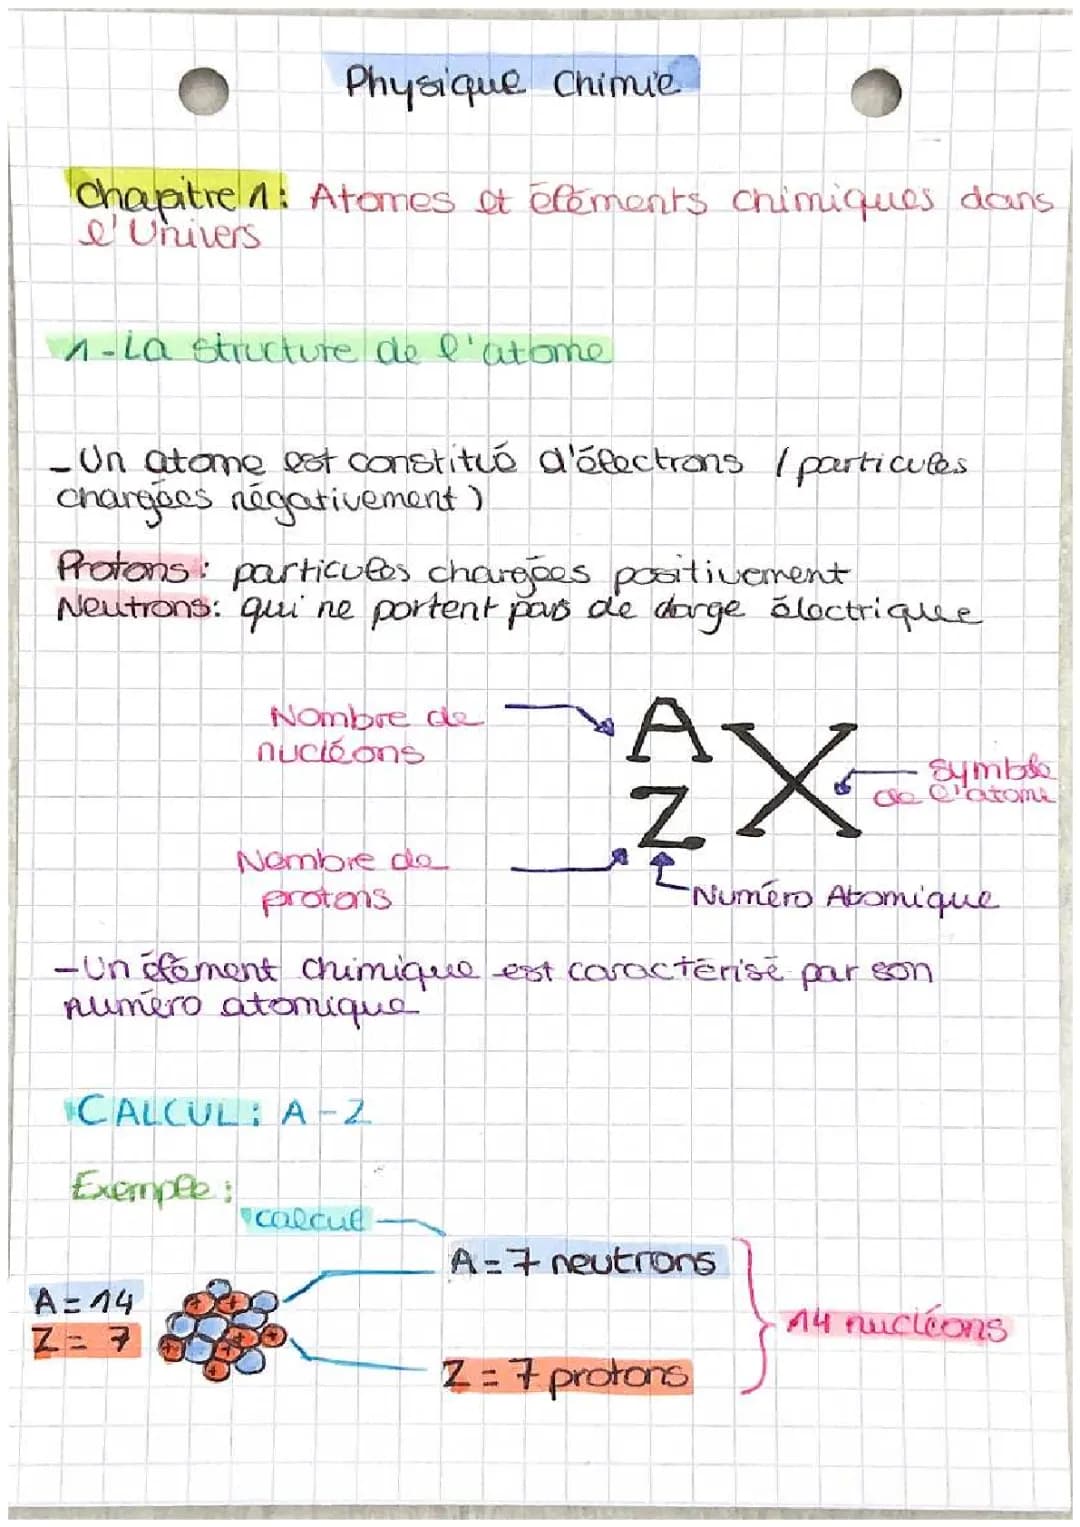 Physique Chimie
Chapitre 1: Atomes et éléments chimiques dans
l'Univers
1-La structure de l'atome
-Un atome est constitué d'électrons (particules
chargées négativement)
Protons: particules chargées positivement
Neutrons: qui ne portent pas de darge électrique
Nombre de
nucléons
A
X
Z
symbole
de l'atome
Nombre de
protons
Numéro Atomique
-Un élément chimique est caractérisé par son
numéro atomique
CALCUL: A-Z
Exemple:
calcul
A=7 neutrons
A=14
Z=7
14 nucléons
Z=7 protons